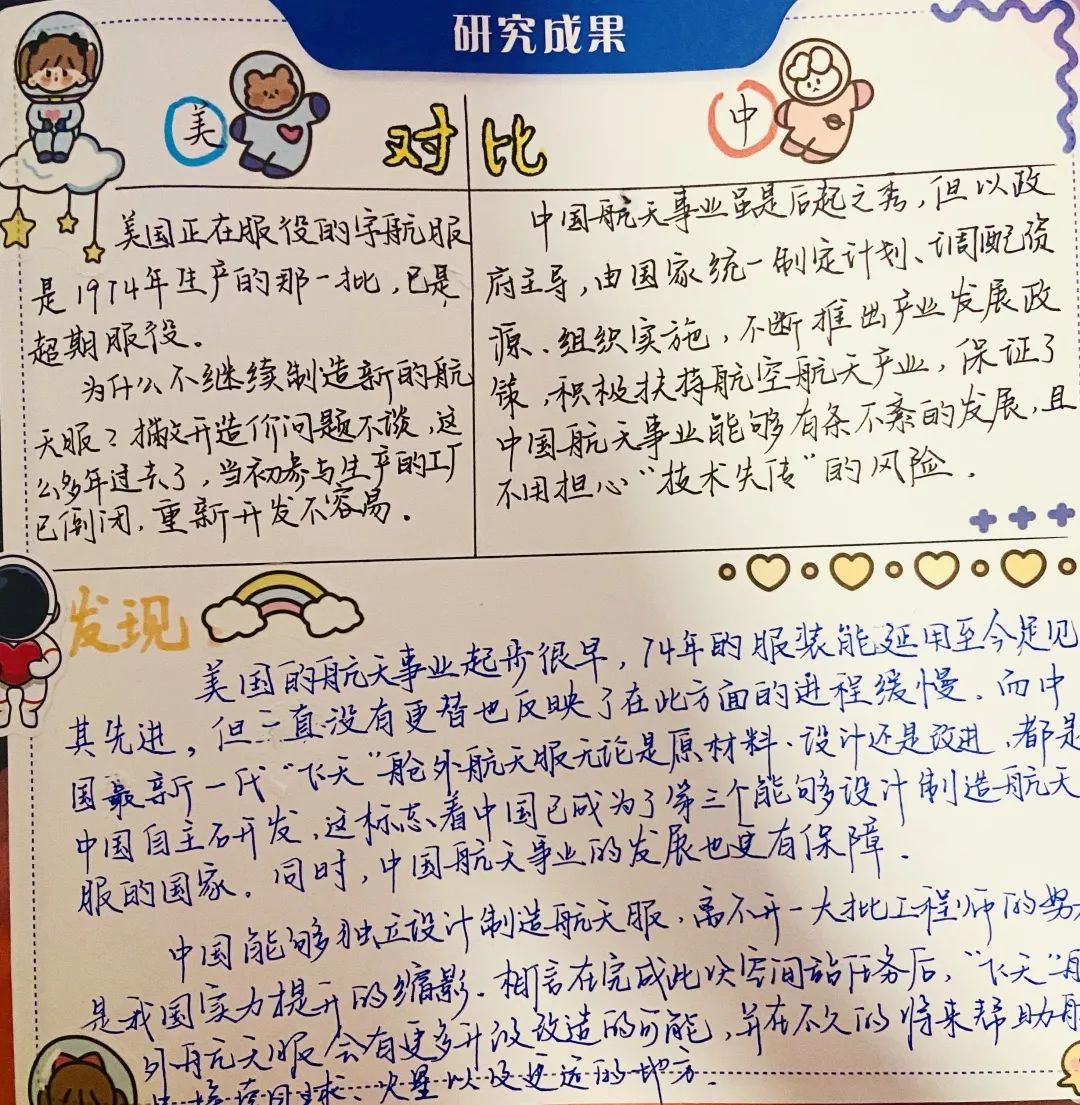 研究成果
美
对比
中
美国正在服役的宇航服
是1974年生产的那一批，已是
超期服役。
为什么不继续制造新的航
天服？撇开造价问题不谈，这
么多年过去了，当初参与生产的工厂
已倒闭，重新开发不容易。
中国航天事业虽是后起之秀，但以政
府主导，由国家统一制定计划、调配资
源、组织实施，不断推出产业发展政
策，积极扶持航空航天产业，保证了
中国航天事业能够有条不紊的发展，且
不用担心“技术失传”的风险．
发现
美国的航天事业起步很早，74年的服装能延用至今足见
其先进，但一直没有更替也反映了在此方面的进程缓慢．而中
国最新一代“飞天”舱外航天服无论是原材料、设计还是改进、都是
中国自主研发，这标志着中国已成为了第三个能够设计制造航天
服的国家．同时，中国航天事业的发展也更有保障．
中国能够独立设计制造航天服，离不开一大批工程师的努
是我国实力提升的缩影．相信在完成此次空间站任务后，“飞天”
外航天服会有更多升级改造的可能，并在不久的将来帮助
月球、火星以及更远的地方．